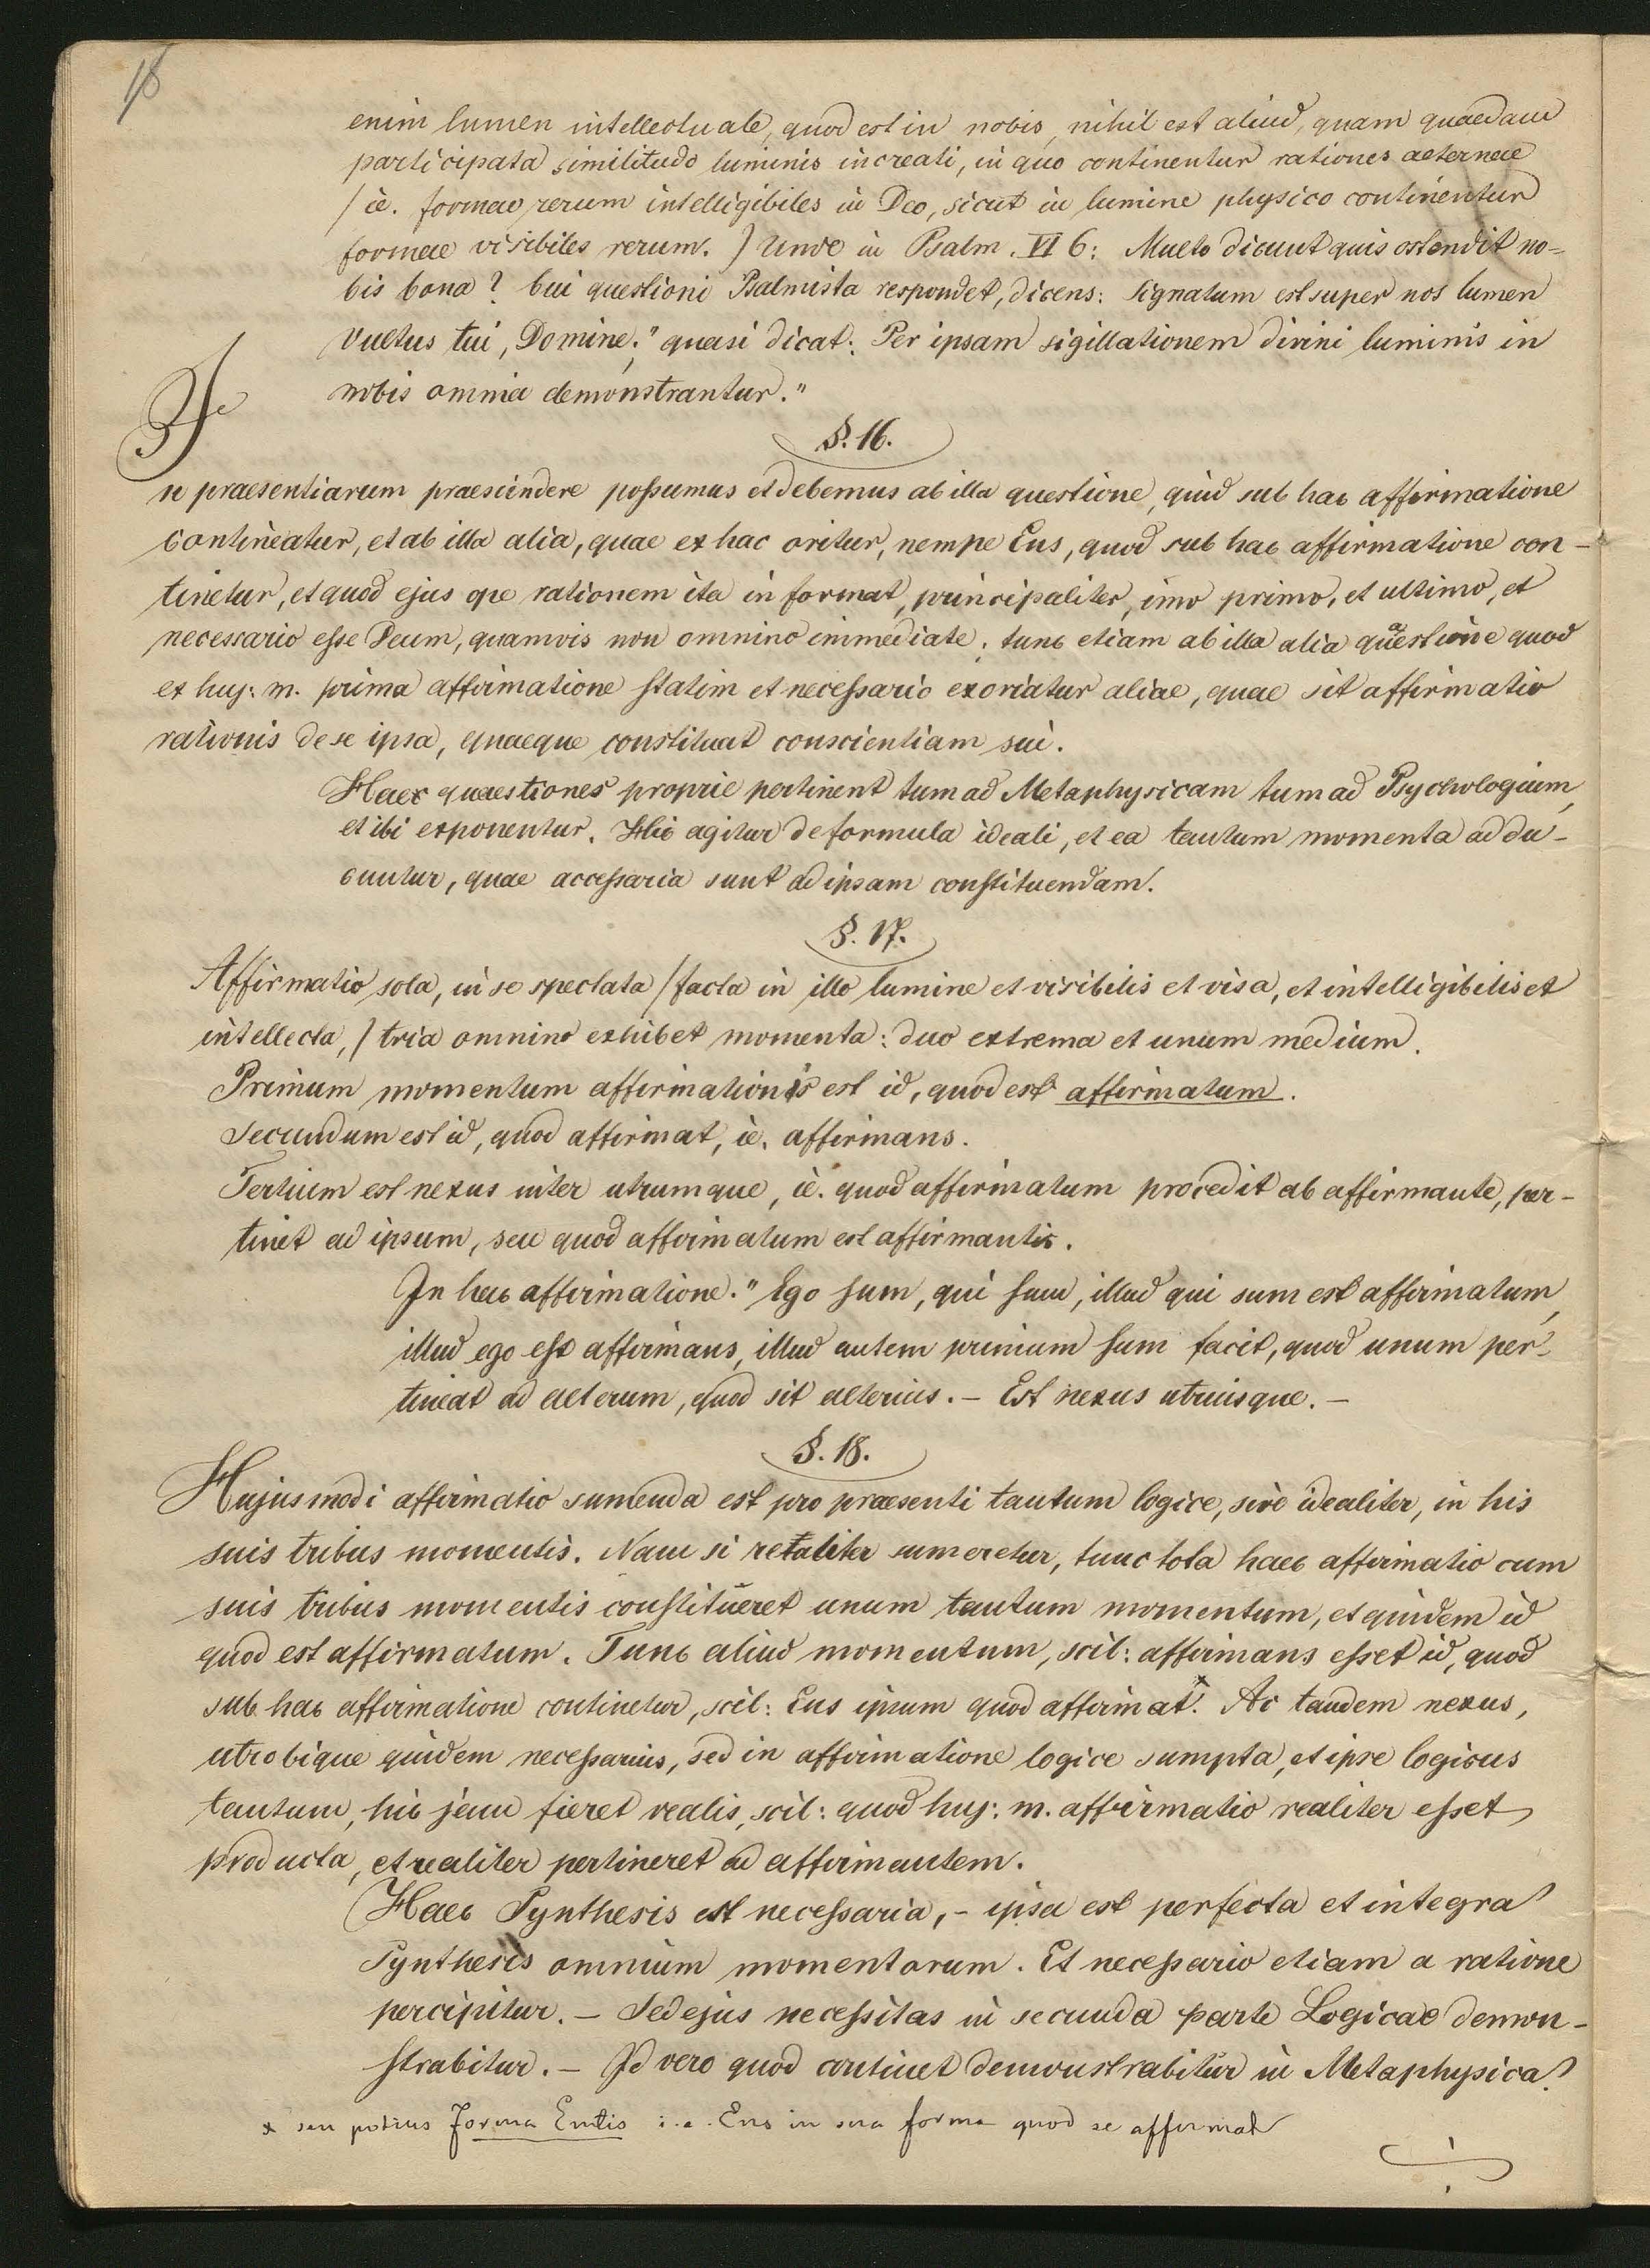 18
enim lumen intellectuale, quod est in nobis, nihil est aliud, quam quaedam
participata similitudo luminis increati, in quo continentur rationes aeternae
/ie. formae rerum intelligibiles in Deo, sicut in lumine physico continentur
formae visibiles rerum.) Unde in Psalm. VI 6: Multo dicunt quis ostendit no-
bis bona? Cui questioni Psalmista respondet, dicens: Signatum est super nos lumen
Vultus tui, Domine;" quasi dicat: Per ipsam sigillationem divini luminis in
nobis omnia demonstrantur."
§. 16.
In praesentiarum praescindere possumus et debemus ab illa questione, quid sub hac affirmatione
contineatur, et ab illa alia, quae ex hac oritur, nempe Ens, quod sub hac affirmatione con-
tinetur, et quod ejus ope rationem ita informat, principaliter, imo primo, et ultimo, et
necessario esse Deum, quamvis non omnino immediate; tunc etiam ab illa alia quaestione quod
ex huj: m. prima affirmatione statim et necessario exoriatur aliae, quae sit affirmatio
rationis de se ipsa, quaeque constituat conscientiam sui.
Haec quaestiones proprie pertinent tum ad Metaphysicam tum ad Psychologiam,
et ibi exponentur. Hic agitur de formula ideali, et ea tantum momenta addu-
cuntur, quae accessaria sunt ad ipsam constituendam.
§. 17.
Affirmatio sola, in se spectata /facta in illo lumine et visibilis et visa, et intelligibilis et
intellecta,/ tria omnino exhibet momenta: duo extrema et unum medium.
Primum momentum affirmationis est id, quod est affirmatum.
Secundum est id, quod affirmat, ie. affirmans.
Tertium est nexus inter utrumque, ie. quod affirmatum procedit ab affirmante, per-
tinet ad ipsum, seu quod affirmatum est affirmantis.
In hac affirmatione." Ego sum, qui sum, illud qui sum est affirmatum,
illud ego est affirmans, illud autem primum sum facit, quod unum per-
tineat ad alterum, quod sit alterius. - Est nexus utriusque. -
§. 18.
Hujusmodi affirmatio sumenda est pro praesenti tantum logice, sive idealiter, in his
suis tribus momentis. Nam si retaliter sumeretur, tunc tota haec affirmatio cum
suis tribus momentis constitueret unum tantum momentum, et quidem id
quod est affirmatum. Tunc aliud momentum, scil: affirmans esset id, quod
sub hac affirmatione continetur, scil: Ens ipsum quod affirmat.* Ac tandem nexus,
utrobique quidem necessarius, sed in affirmatione logice sumpta, et ipse logicus
tantum, hic jam fieret realis, scil: quod huj: m. affirmatio realiter esset
producta, et realiter pertineret ad affirmantem.
Haec Synthesis est necessaria, - ipsa est perfecta et integra
Synthesis omnium momentorum. Et necessario etiam a ratione
percipitur. - Sed ejus necessitas in secunda parte Logicae demon-
strabitur. - Id vero quod continet demonstrabitur in Metaphysica.
x seu potius Forma Entis i.e. Ens in sua forma quod se affirmat